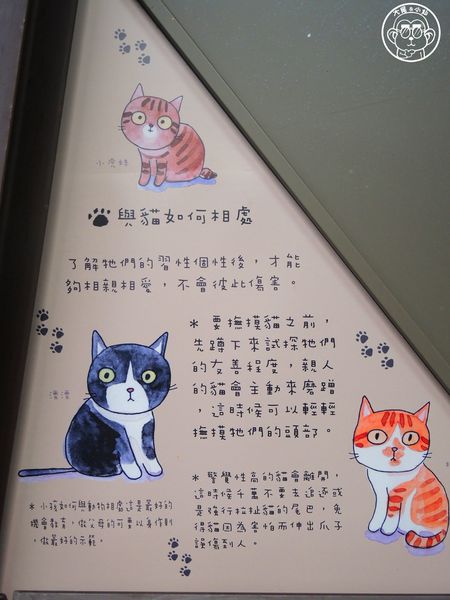 大麗a小站
小虎妹
與貓如何相處
了解牠們的習性個性後，才能
夠相親相愛，不會彼此傷害。
＊要撫摸貓之前，
先蹲下來試探牠們
的友善程度，親人
的貓會主動來磨蹭
，這時候可以輕輕
撫摸牠們的頭部。
＊警覺性高的貓會離開，
這時候千萬不要去追逐或
是強行拉扯貓的尾巴，免
得貓因為害怕而伸出爪子
誤傷到人。
＊小孩如何與動物相處這是最好的
機會教育，做父母的可要以身作則
，做最好的示範。